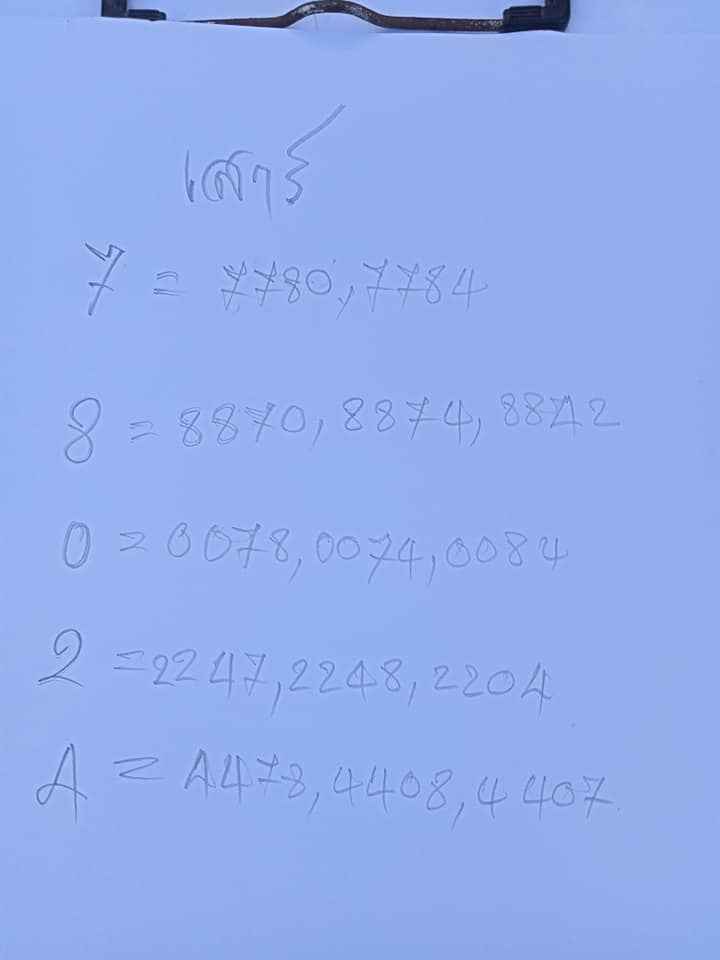 เสาร์
7 = 7780,7784
8 = 8870, 8874, 8842
0 = 0078,0074,0084
2 = 2247,2248,2204
4 = 4478,4408,4407